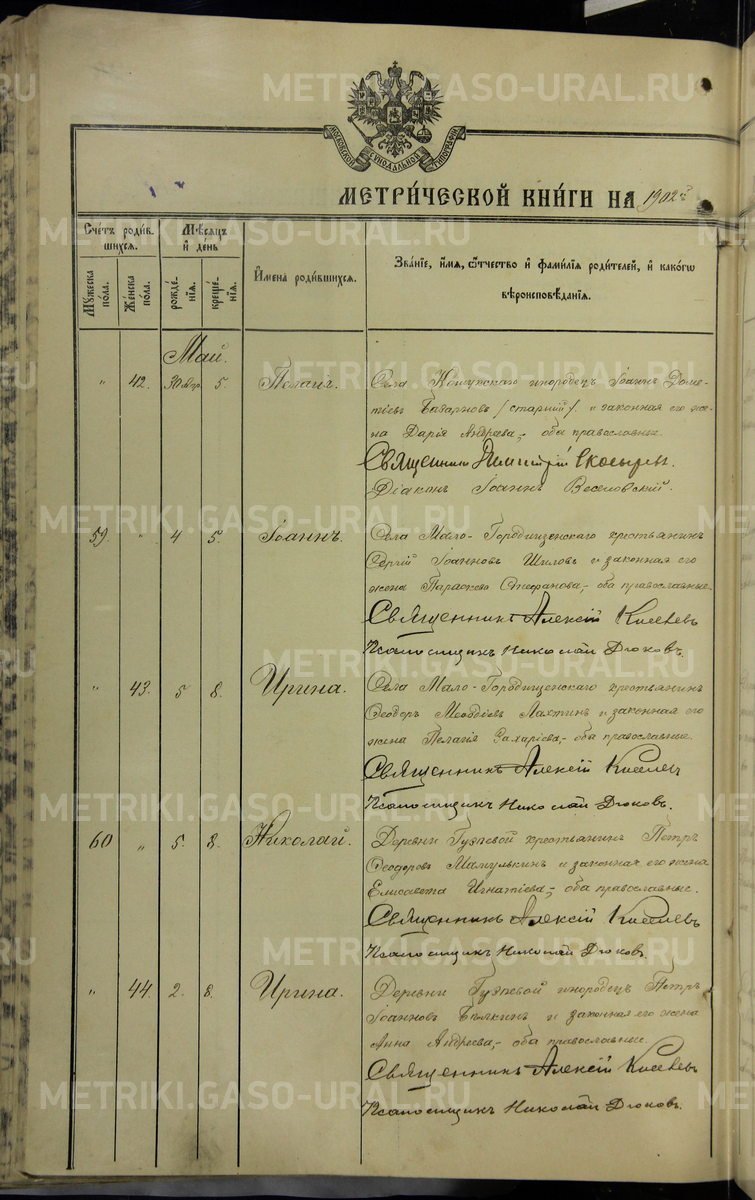 МОСКОВСКОЙ СѴНОДАЛЬНОЙ ТИПОГРАФІИ
МЕТРИ́ЧЕСКОЙ КНИ́ГИ НА 1902й
Сче́тъ роди́в-
шихся.
Мѣ́сяцъ
и҆ де́нь
И҆мена̀ роди́вшихся.
Зва́нїе, и҆́мя, ѻ҆́тчество и҆ фами́лїя роди́телей, и҆ како́гѡ
вѣроисповѣ́данїя.
Мꙋ́жеска по́ла.
Же́нска по́ла.
рожде́нїя.
креще́нїя.
Май.
" 42. 30 Апр. 5. Пелагія. Села инородецъ Іоаннъ Доме-
тіевъ /старшій/ и законная его же-
на Дарія Андреева,- оба православные.
Священникъ Димитрій
Діаконъ Іоаннъ Веселовскій.
59. " 4 5. Іоаннъ. Села Мало-Городищенскаго крестьянинъ
Сергій Іоанновъ Шиловъ и законная его
жена Параскева Стефанова,- оба православные.
Священникъ Алексій Киселевъ
Псаломщикъ Николай Дюковъ.
" 43. 5 8. Ирина. Села Мало-Городищенскаго крестьянинъ
Ѳеодоръ Меѳодіевъ Лахтинъ и законная его
жена Пелагія Захаріева,- оба православные.
Священникъ Алексій Киселевъ
Псаломщикъ Николай Дюковъ.
60 " 5. 8. Николай. Деревни Гузѣевой крестьянинъ Петръ
Ѳеодоровъ Мамулькинъ и законная его жена
Елисавета Игнатіева,- оба православные.
Священникъ Алексій Киселевъ
Псаломщикъ Николай Дюковъ.
" 44. 2. 8. Ирина. Деревни Гузѣевой инородецъ Петръ
Іоанновъ Бѣлкинъ и законная его жена
Анна Андреева,- оба православные.
Священникъ Алексій Киселевъ
Псаломщикъ Николай Дюковъ.
METRIKI.GASO-URAL.RU